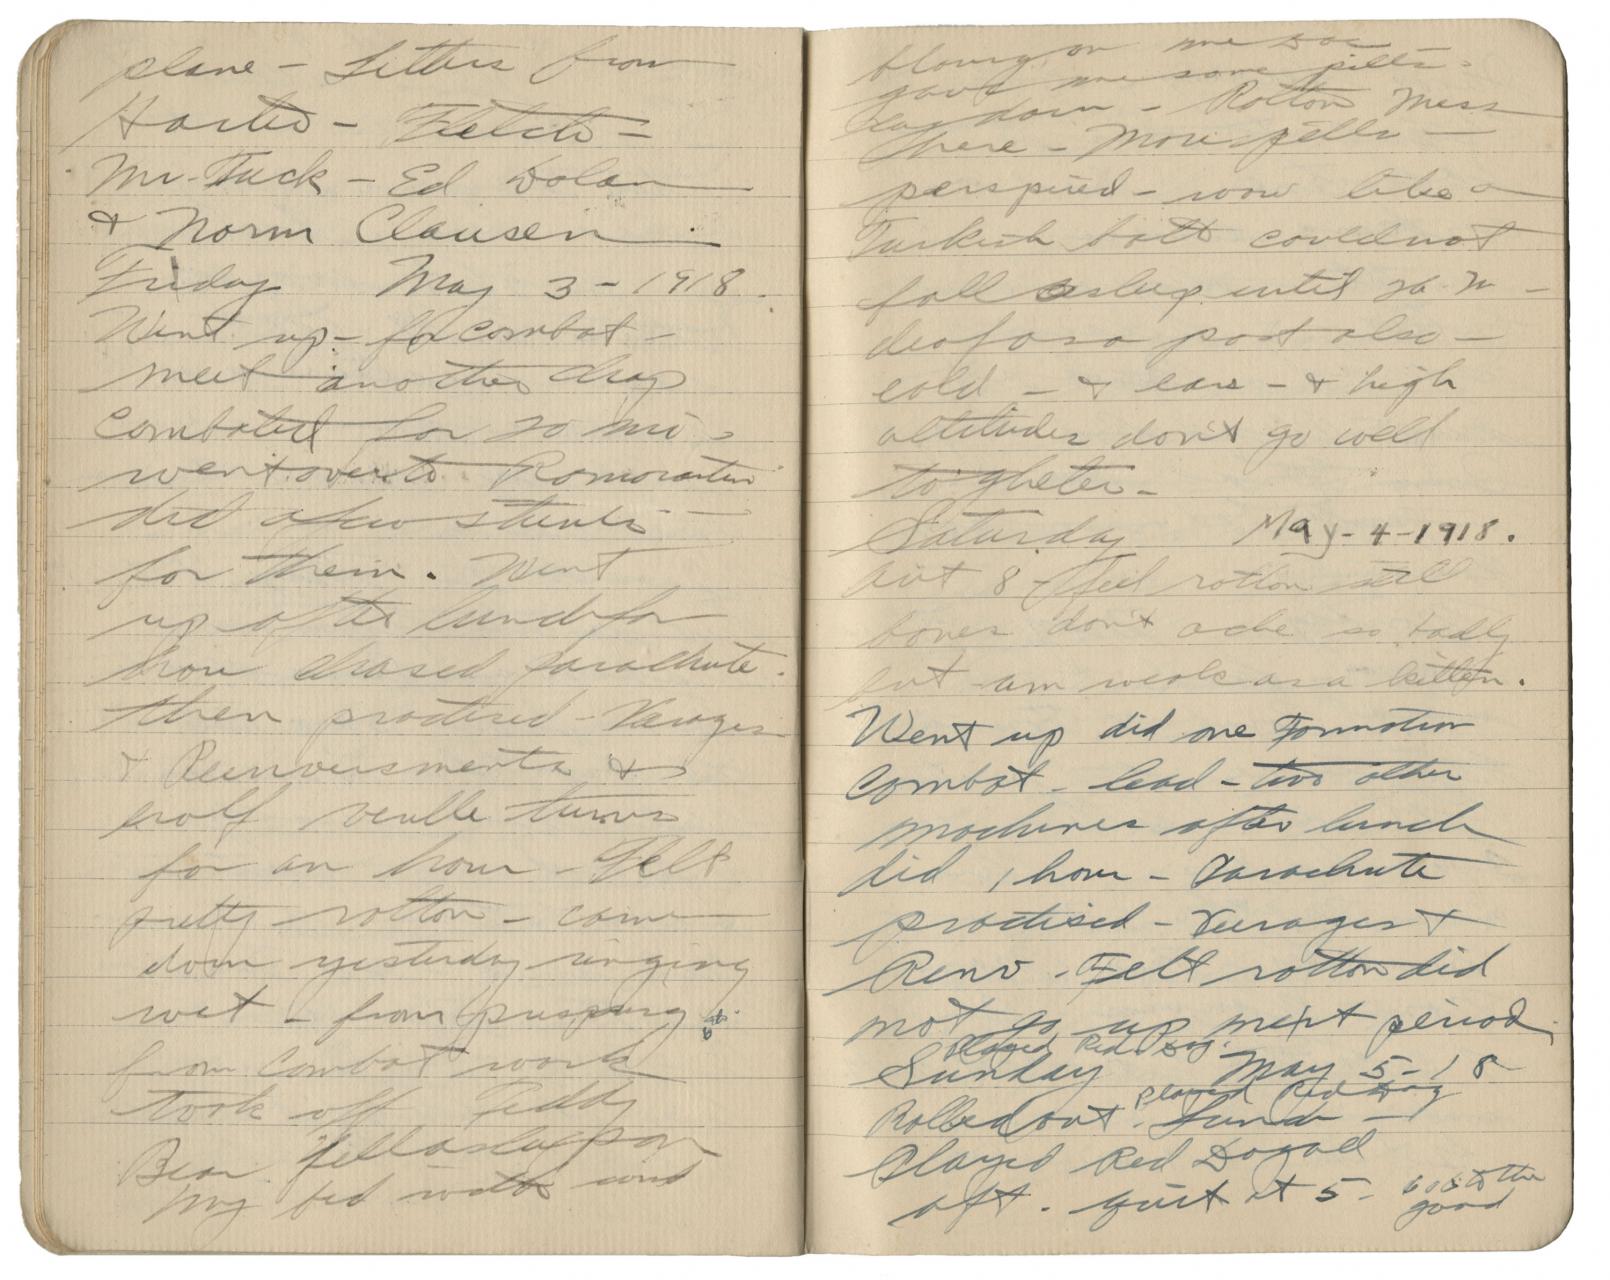 plane - Letters from
Harted - Fletch -
Mr. Tuck - Ed Dolan
& Norm Clausen
Friday May 3 - 1918.
Went up - for combat -
meet another chap
combated for 20 mi -
went over to Romorantin
did a few stunts -
for them. Went
up after lunch for
hour chased parachute.
then practised - Virages
& Renversments &
grolf vrille turns
for an hour - Felt
pretty rotton - came
down yesterday ringing
wet - from
from combat work
took off Teddy
Bear. fell asleep on
my bed with wind
blowing on me Doc
gave me some pills -
lay down - Rotton Mess
here - More pills -
perspired - wow like a
Turkish bath could not
fall asleep until 2 a. m -
deaf as a post also -
cold - & ears - & high
altitudes don't go well
togheter -
Saturday May - 4 - 1918.
out 8 - feel rotton still
bones don't ache so badly
but am weak as a kitten.
Went up did one Formation
combat - lead - two other
machines after lunch
did 1 hour - Parachute
practised - Virages &
Renv - Felt rotton did
not go up next period.
Played Red Dog.
Sunday May 5 - 18
Rolled out. played Red Dog Lunch -
Played Red Dog all
aft. quit at 5 - to the
good